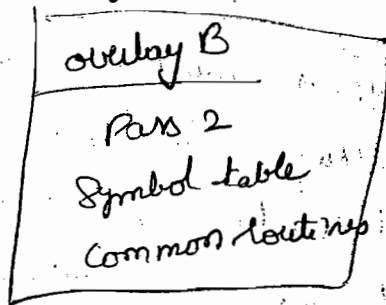 overlay B
Pass 2
Symbol table
Common routines